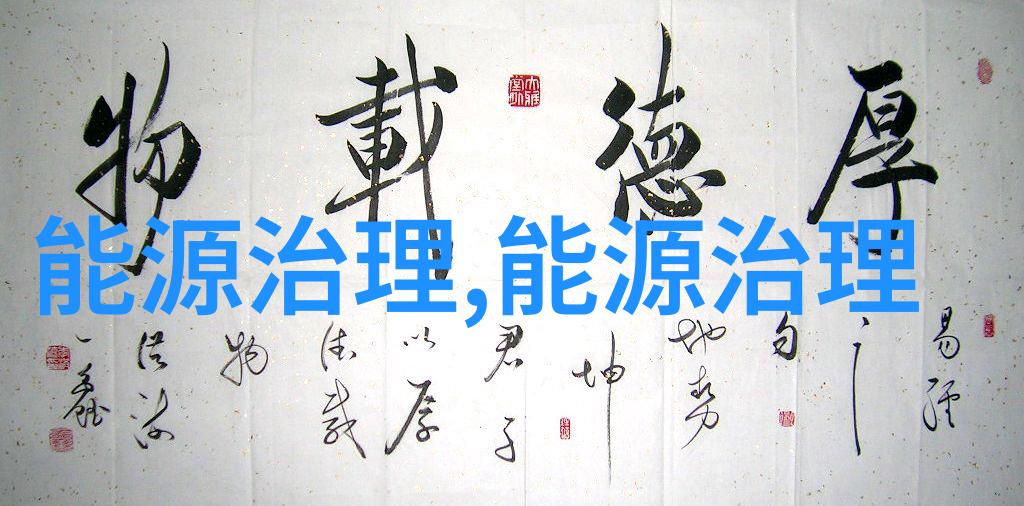 厚德載物
能源治理,能源治理
易經
之
句
地勢
坤
君子
以厚
德載
物